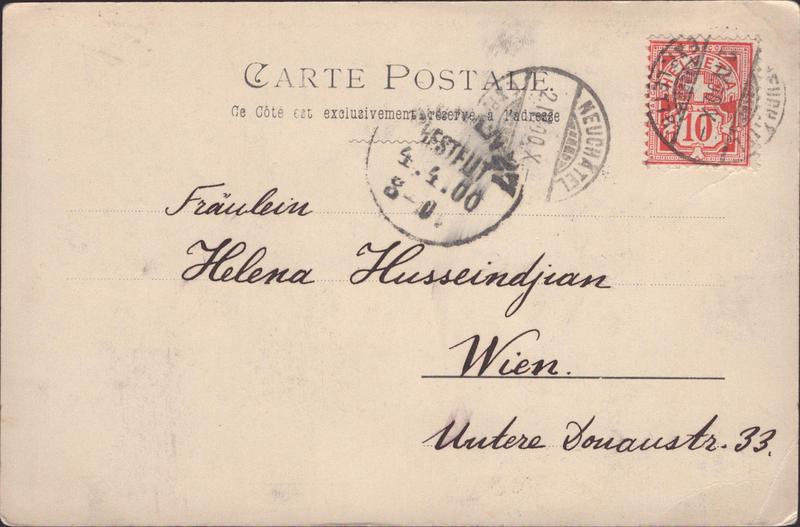 CARTE POSTALE.
Ce Côté est exclusivement réservé à l'adresse
NEUCHATEL
HELVETIA
10
BESTELLT
4.4.00
Fräulein
Helena Husseindjian
Wien.
Untere Donaustr. 33.